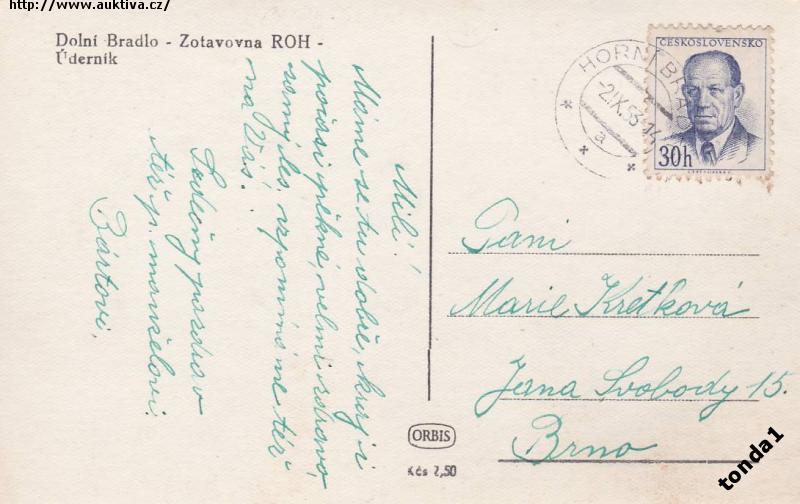 http://www.auktiva.cz/
Dolní Bradlo - Zotavovna ROH -
Úderník
ČESKOSLOVENSKO
30h
HORNÍ BRADLO
-2.IX.53-14
a
Milí!
Máme se tu dobře, kraj i
počasí pěkné, velmi
les, vzpomínáme též
na Vás!
Srdečný pozdrav
též p. manželovi.
Bártovi.
Paní
Marie Kretková
Jana Svobody 15.
Brno
ORBIS
Kčs 2,50
tonda1